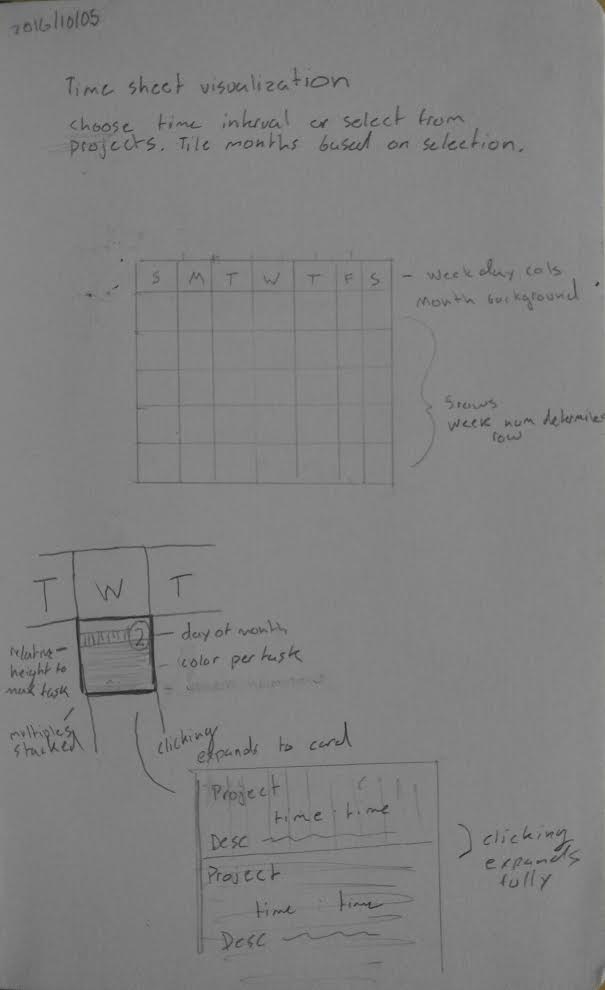 2016/10/05
Time sheet visualization
choose time interval or select from
projects. Tile months based on selection.
S M T W T F S
- weekday cols
month background
5 rows
week num determines
row
T W T
2
- day of month
relative
height to
max task
- color per task
multiples
stacked
clicking
expands to card
Project
time . time
Desc
Project
time . time
Desc
clicking
expands
fully